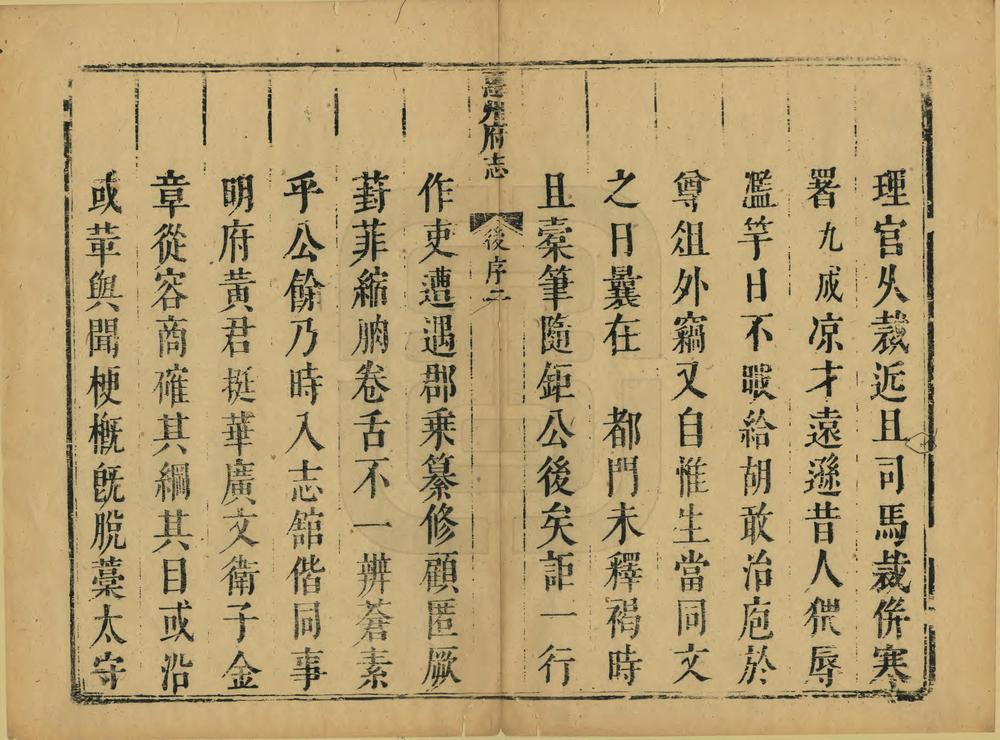 理官久裁近且司馬裁併寒
署九成凉才遠遜昔人猥辱
濫竽日不暇給胡敢治庖於
尊俎外竊又自惟生當同文
之日曩在　都門未釋褐時
且橐筆隨鉅公後矣詎一行
惠州府志
後序二
作吏遭遇郡乘纂修顧匿厥
葑菲縮朒卷舌不一辨蒼素
乎公餘乃時入志舘偕同事
明府黃君挺華廣文衛子金
章從容商確其綱其目或沿
或革與聞梗概旣脫藁太守